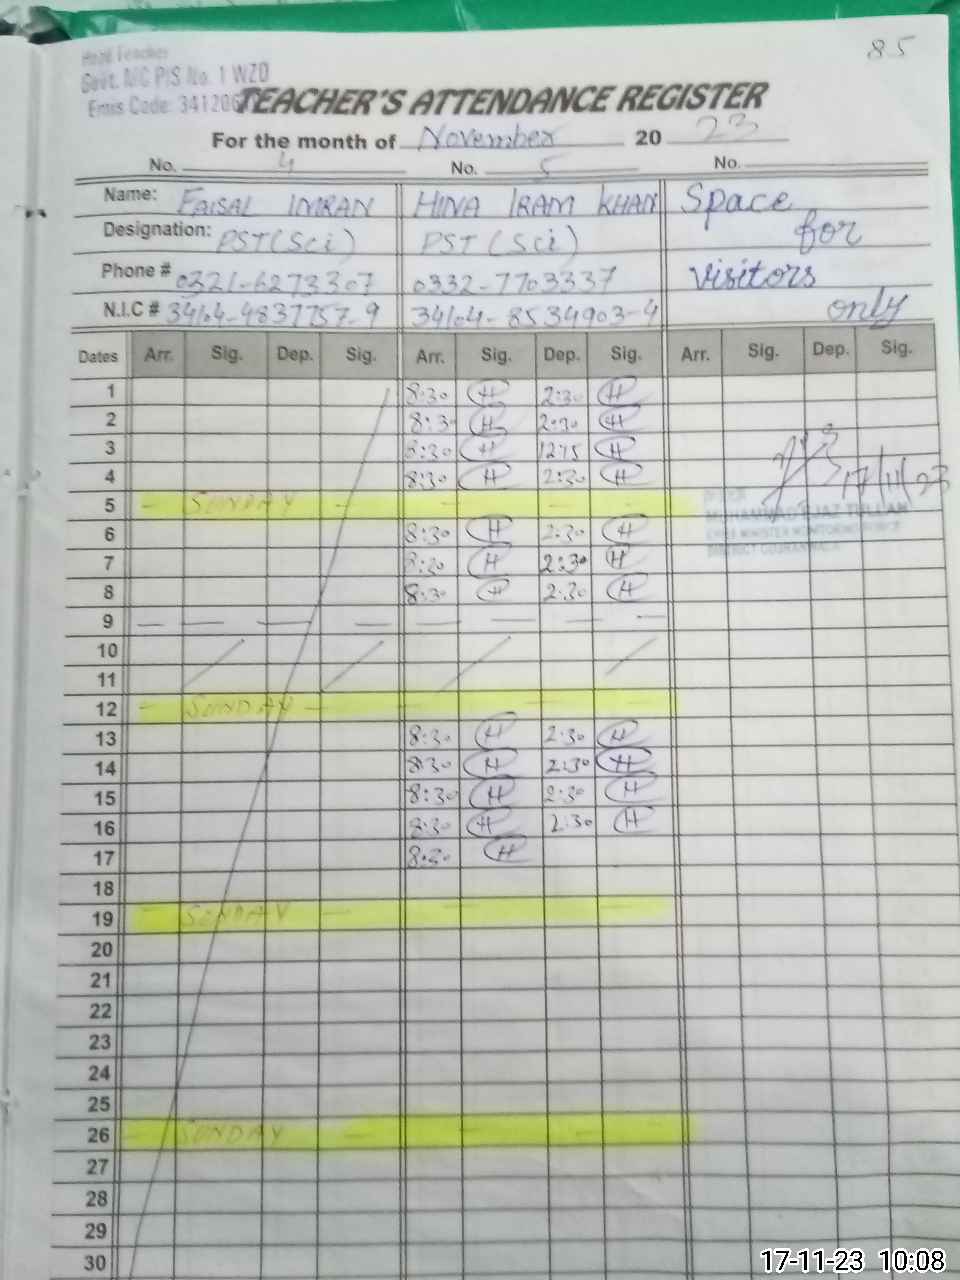 85
Head Teacher
Govt. MC P/S No. 1 WZD
Emis Code: 341206
TEACHER'S ATTENDANCE REGISTER
For the month of November 2023
No. 4 No. 5 No.
Name: FAISAL IMRAN HINA IRAM KHAN Space
Designation: PST(Sci) PST (Sci) for
Phone # 0321-6273307 0332-7703337 visitors
N.I.C # 34104-4837757-9 34104-8534903-4 only
Dates Arr. Sig. Dep. Sig. Arr. Sig. Dep. Sig. Arr. Sig. Dep. Sig.
1 8:30 H 2:30 H
2 8:30 H 2:30 H
3 8:30 H 12:15 H
4 8:30 H 2:30 H 17/11/23
5 - SUNDAY - - - - - -
6 8:30 H 2:30 H
7 8:30 H 2:30 H
8 8:30 H 2:30 H
9 — — — — — — — —
10
11
12 - SUNDAY - - - -
13 8:30 H 2:30 H
14 8:30 H 2:30 H
15 8:30 H 2:30 H
16 8:30 H 2:30 H
17 8:30 H
18
19 - SUNDAY - - - -
20
21
22
23
24
25
26 - SUNDAY - - - -
27
28
29
30
17-11-23 10:08